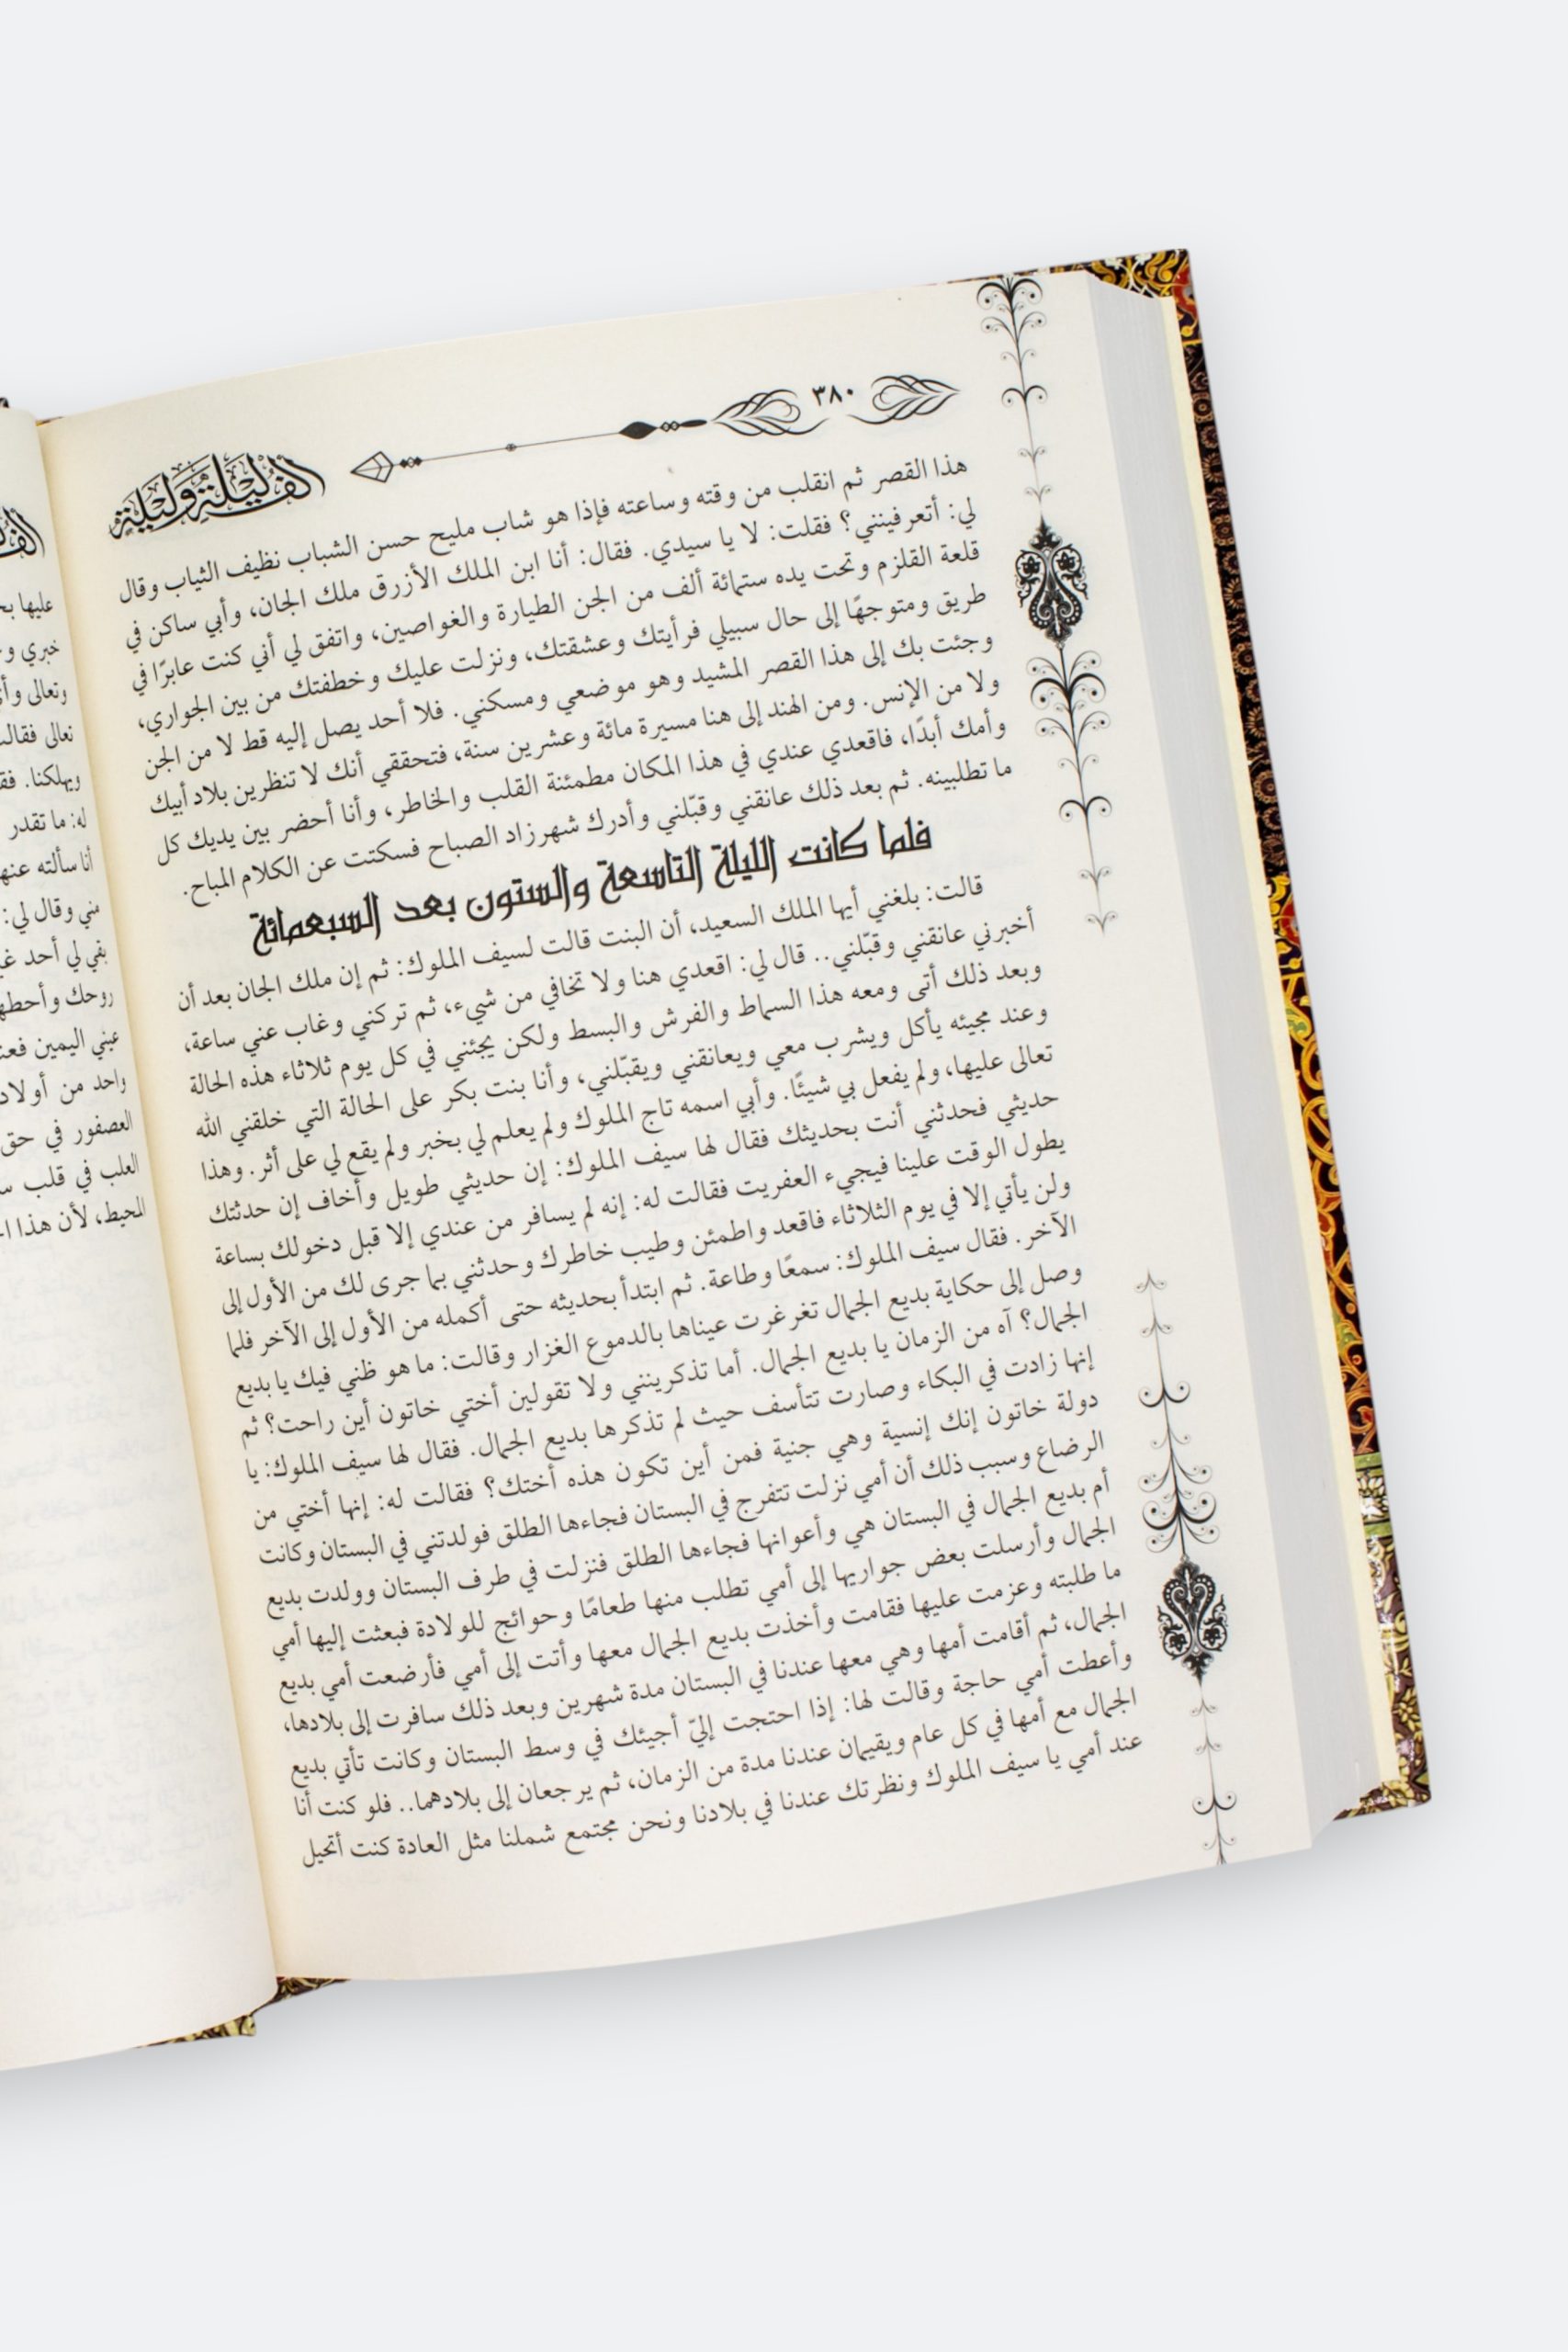 ٣٨٠
ألف ليلة وليلة
هذا القصر ثم انقلب من وقته وساعته فإذا هو شاب مليح حسن الشباب نظيف الثياب وقال
لي: أتعرفينني؟ فقلت: لا يا سيدي. فقال: أنا ابن الملك الأزرق ملك الجان، وأبي ساكن في
قلعة القلزم وتحت يده ستمائة ألف من الجن الطيارة والغواصين، واتفق لي أني كنت عابرًا في
طريق ومتوجهًا إلى حال سبيلي فرأيتك وعشقتك، ونزلت عليك وخطفتك من بين الجواري،
وجئت بك إلى هذا القصر المشيد وهو موضعي ومسكني. فلا أحد يصل إليه قط لا من الجن
ولا من الإنس. ومن الهند إلى هنا مسيرة مائة وعشرين سنة، فتحققي أنك لا تنظرين بلاد أبيك
وأمك أبدًا، فاقعدي عندي في هذا المكان مطمئنة القلب والخاطر، وأنا أحضر بين يديك كل
ما تطلبينه. ثم بعد ذلك عانقني وقبّلني وأدرك شهرزاد الصباح فسكتت عن الكلام المباح.
فلما كانت الليلة التاسعة والستون بعد السبعمائة
قالت: بلغني أيها الملك السعيد، أن البنت قالت لسيف الملوك: ثم إن ملك الجان بعد أن
أخبرني عانقني وقبّلني.. قال لي: اقعدي هنا ولا تخافي من شيء، ثم تركني وغاب عني ساعة،
وبعد ذلك أتى ومعه هذا السماط والفرش والبسط ولكن يجئني في كل يوم ثلاثاء هذه الحالة
وعند مجيئه يأكل ويشرب معي ويعانقني ويقبّلني، وأنا بنت بكر على الحالة التي خلقني الله
تعالى عليها، ولم يفعل بي شيئًا. وأبي اسمه تاج الملوك ولم يعلم لي بخبر ولم يقع لي على أثر. وهذا
حديثي فحدثني أنت بحديثك فقال لها سيف الملوك: إن حديثي طويل وأخاف إن حدثتك
يطول الوقت علينا فيجيء العفريت فقالت له: إنه لم يسافر من عندي إلا قبل دخولك بساعة
ولن يأتي إلا في يوم الثلاثاء فاقعد واطمئن وطيب خاطرك وحدثني بما جرى لك من الأول إلى
الآخر. فقال سيف الملوك: سمعًا وطاعة. ثم ابتدأ بحديثه حتى أكمله من الأول إلى الآخر فلما
وصل إلى حكاية بديع الجمال تغرغرت عيناها بالدموع الغزار وقالت: ما هو ظني فيك يا بديع
الجمال؟ آه من الزمان يا بديع الجمال. أما تذكرينني ولا تقولين أختي خاتون أين راحت؟ ثم
إنها زادت في البكاء وصارت تتأسف حيث لم تذكرها بديع الجمال. فقال لها سيف الملوك: يا
دولة خاتون إنك إنسية وهي جنية فمن أين تكون هذه أختك؟ فقالت له: إنها أختي من
الرضاع وسبب ذلك أن أمي نزلت تتفرج في البستان فجاءها الطلق فولدتني في البستان وكانت
أم بديع الجمال في البستان هي وأعوانها فجاءها الطلق فنزلت في طرف البستان وولدت بديع
الجمال وأرسلت بعض جواريها إلى أمي تطلب منها طعامًا وحوائج للولادة فبعثت إليها أمي
ما طلبته وعزمت عليها فقامت وأخذت بديع الجمال معها وأتت إلى أمي فأرضعت أمي بديع
الجمال، ثم أقامت أمها وهي معها عندنا في البستان مدة شهرين وبعد ذلك سافرت إلى بلادها،
وأعطت أمي حاجة وقالت لها: إذا احتجت إليّ أجيئك في وسط البستان وكانت تأتي بديع
الجمال مع أمها في كل عام ويقيمان عندنا مدة من الزمان، ثم يرجعان إلى بلادهما.. فلو كنت أنا
عند أمي يا سيف الملوك ونظرتك عندنا في بلادنا ونحن مجتمع شملنا مثل العادة كنت أتحيل
عليها
خبري
وتعالى
تعالى
ويهلكنا.
له: ما تقدر
أنا سألته عنه
مني وقال لي:
بقي لي أحد
روحك
عيني اليمين
واحد من أولاد
العصفور في حق
العلب في قلب
المحيط، لأن هذا